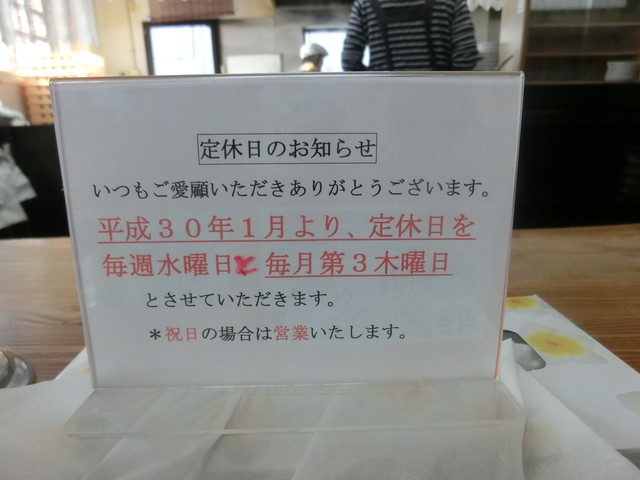 定休日のお知らせ
いつもご愛顧いただきありがとうございます。
平成３０年１月より、定休日を
毎週水曜日と毎月第３木曜日
とさせていただきます。
＊祝日の場合は営業いたします。